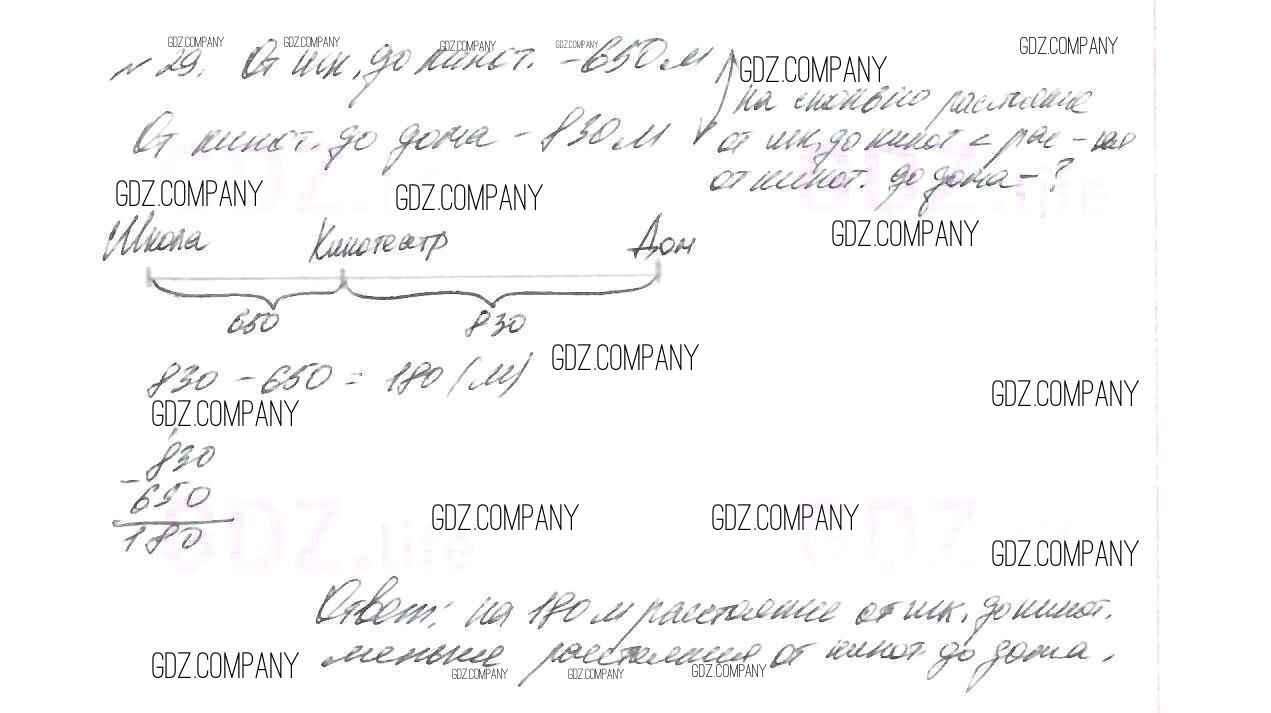 GDZ.COMPANY GDZ.COMPANY GDZ.COMPANY GDZ.COMPANY GDZ.COMPANY
№ 29. От шк. до кинот. - 650 м
GDZ.COMPANY
на сколько расстояние
От кинот. до дома - 830 м
от шк. до кинот < рас - ния
от кинот. до дома - ?
GDZ.COMPANY GDZ.COMPANY
GDZ.COMPANY
Школа Кинотеатр Дом
650 830
GDZ.COMPANY
830 - 650 = 180 (м)
GDZ.COMPANY
GDZ.COMPANY
- 830
650
180
GDZ.life
GDZ.COMPANY GDZ.COMPANY
GDZ.COMPANY
Ответ: на 180 м расстояние от шк. до кинот.
меньше расстояния от кинот. до дома.
GDZ.COMPANY GDZ.COMPANY GDZ.COMPANY GDZ.COMPANY